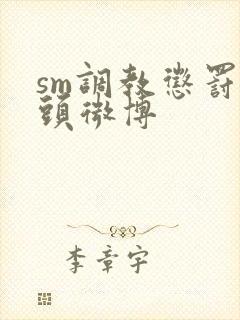 sm調教懲罰
頭微博
李章宇